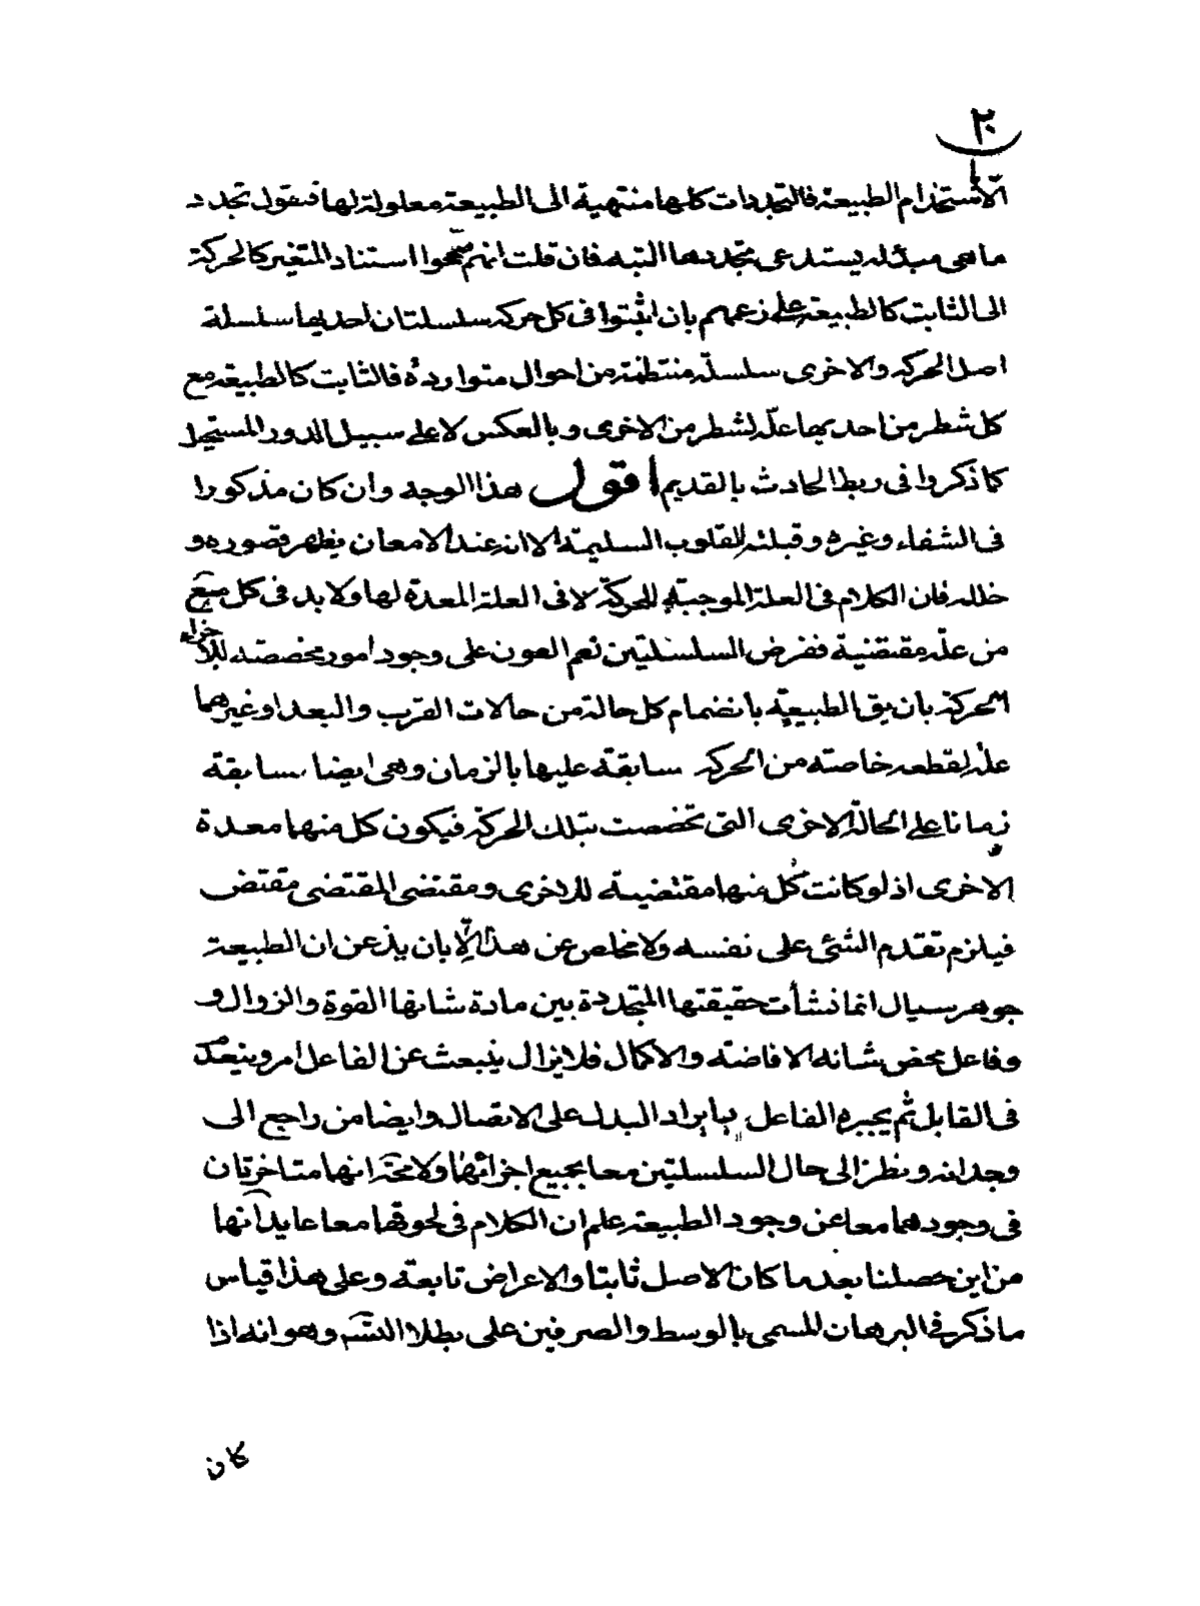 ٢٠
الا باستخدام الطبيعة فالتجددات كلها منتهية الى الطبيعة معلولة لها فنقول تجدد
ما هي مبدئه يستدعى تجددها البته فان قلت انهم صححوا استناد المتغير كالحركة
الى الثابت كالطبيعة على زعمهم بان اثبتوا فى كل حركه سلسلتان احديها سلسلة
اصل الحركه والاخرى سلسلة منتظمة من احوال متواردة فالثابت كالطبيعه مع
كل شطر من احديها علة لشطر من الاخرى وبالعكس لا على سبيل الدور المستحيل
كما ذكروا فى ربط الحادث بالقديم اقول هذا الوجه وان كان مذكورا
فى الشفاء وغيره وقبلته القلوب السليمة الا انه عند الامعان يظهر قصوره و
خلله فان الكلام فى العلة الموجبة للحركة لا فى العلة المعدة لها ولا بد فى كل
من علة مقتضية ففرض السلسلتين نعم العون على وجود امور مخصصة للاجزاء
الحركة بان يق الطبيعة بانضمام كل حالة من حالات القرب والبعد او غيرهما
علة لقطعه خاصته من الحركه سابقة عليها بالزمان وهى ايضا سابقة
زمانا على الحالة الاخرى التى تخصصت بتلك الحركة فيكون كل منهما معدة
الاخرى اذ لو كانت كل منهما مقتضية للاخرى ومقتضى المقتضى مقتض
فيلزم تقدم الشئ على نفسه ولا مخلص عن هذا الا بان يذعن ان الطبيعة
جوهر سيال انما نشأت حقيقتها المتجددة بين مادة شانها القوة والزوال و
وفاعل محض شانه الافاضه والاكمال فلا يزال ينبعث عن الفاعل امر وينعدم
فى القابل ثم يجبره الفاعل بايراد البدل على الاتصال وايضا من راجع الى
وجدانه ونظر الى حال السلسلتين معا بجميع اجزائهما ولا محة انهما متاخرتان
فى وجودهما معا عن وجود الطبيعة علم ان الكلام فى لحوقها معا عايد انها
من اين حصلنا بعد ما كان الاصل ثابتا والاعراض تابعة وعلى هذا قياس
ما ذكر فى البرهان المسمى بالوسط والصرفين على بطلا التسـ وهو انه اذا
كان